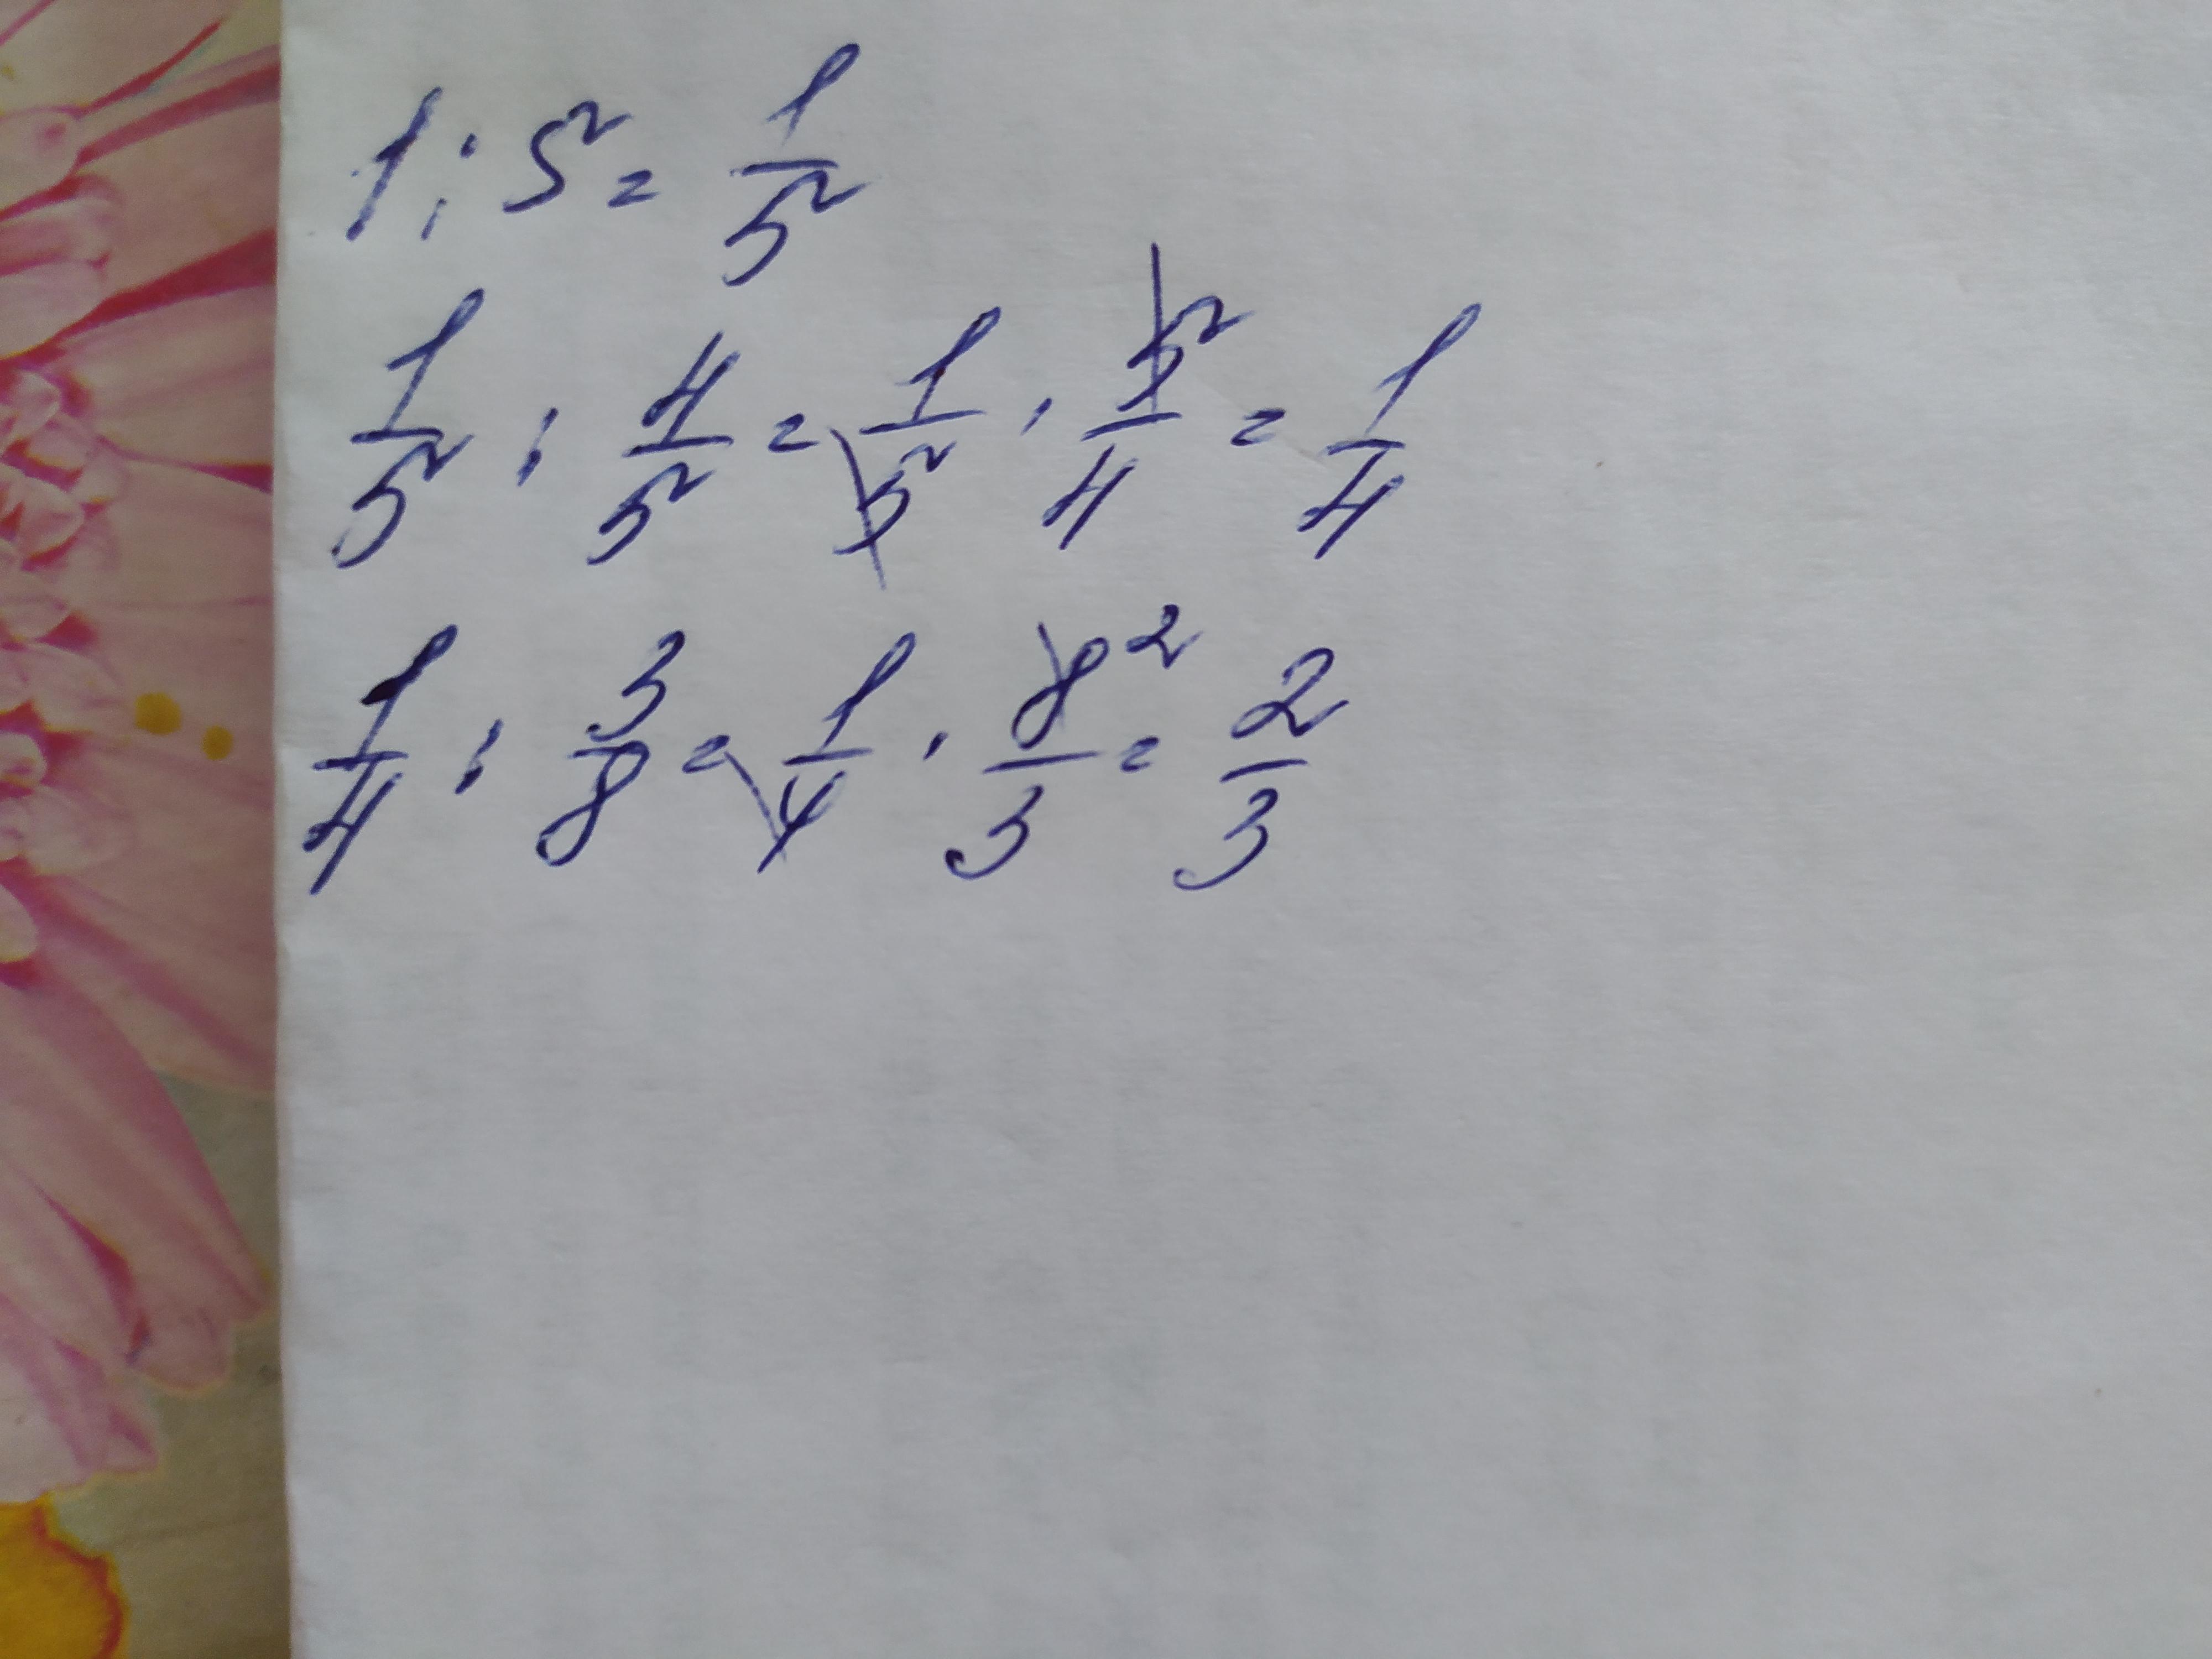 1 : 5² = 1/5²
1/5² : 4/5² = 1/5² · 5²/4 = 1/4
1/4 : 3/8 = 1/4 · 8²/3 = 2/3